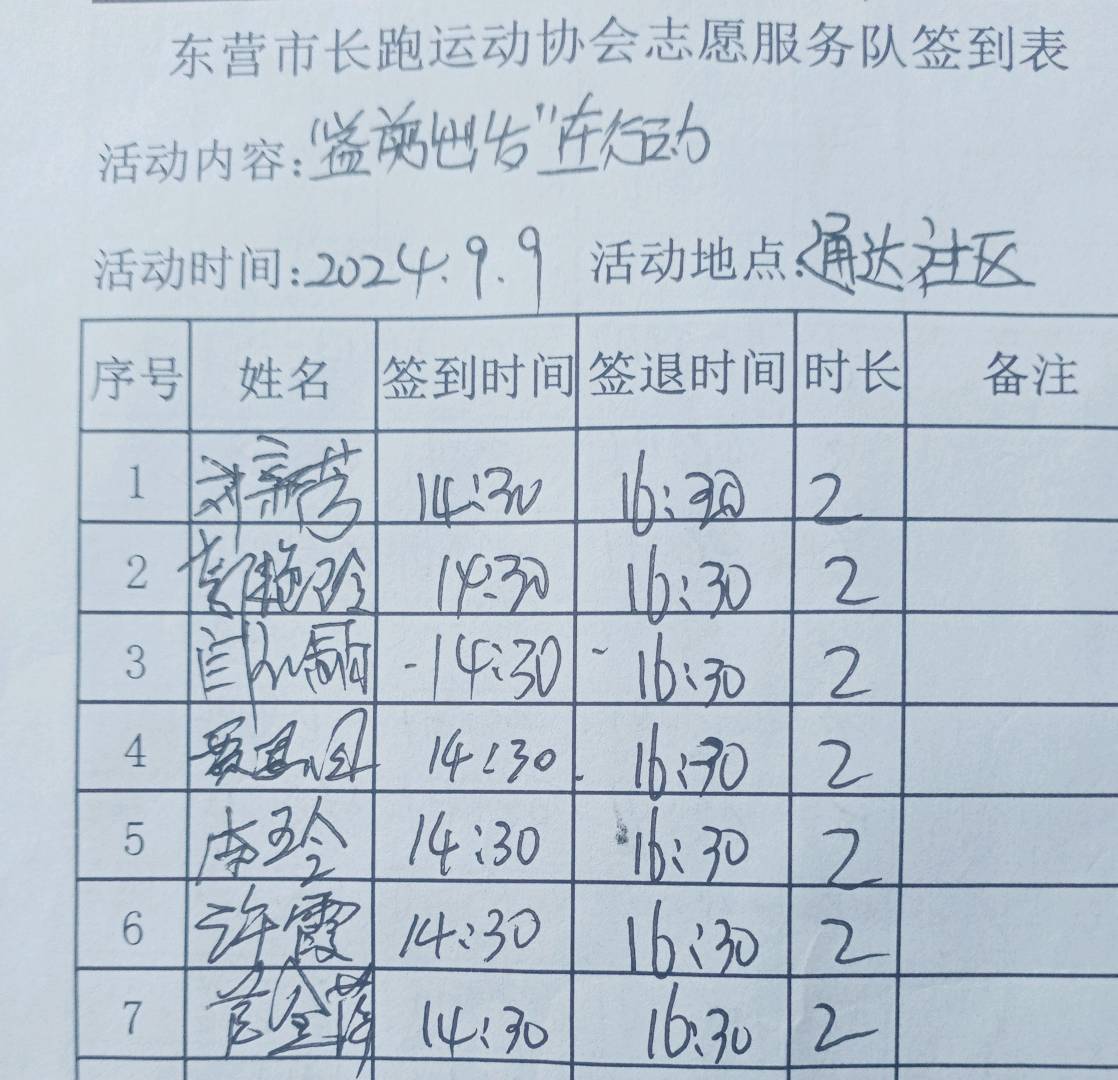 东营市长跑运动协会志愿服务队签到表
活动内容: 在行动
活动时间:2024.9.9 活动地点:通达社区
序号 姓名 签到时间 签退时间 时长 备注
1 14:30 16:30 2
2 14:30 16:30 2
3 14:30 16:30 2
4 14:30 16:30 2
5 14:30 16:30 2
6 许霞 14:30 16:30 2
7 14:30 16:30 2